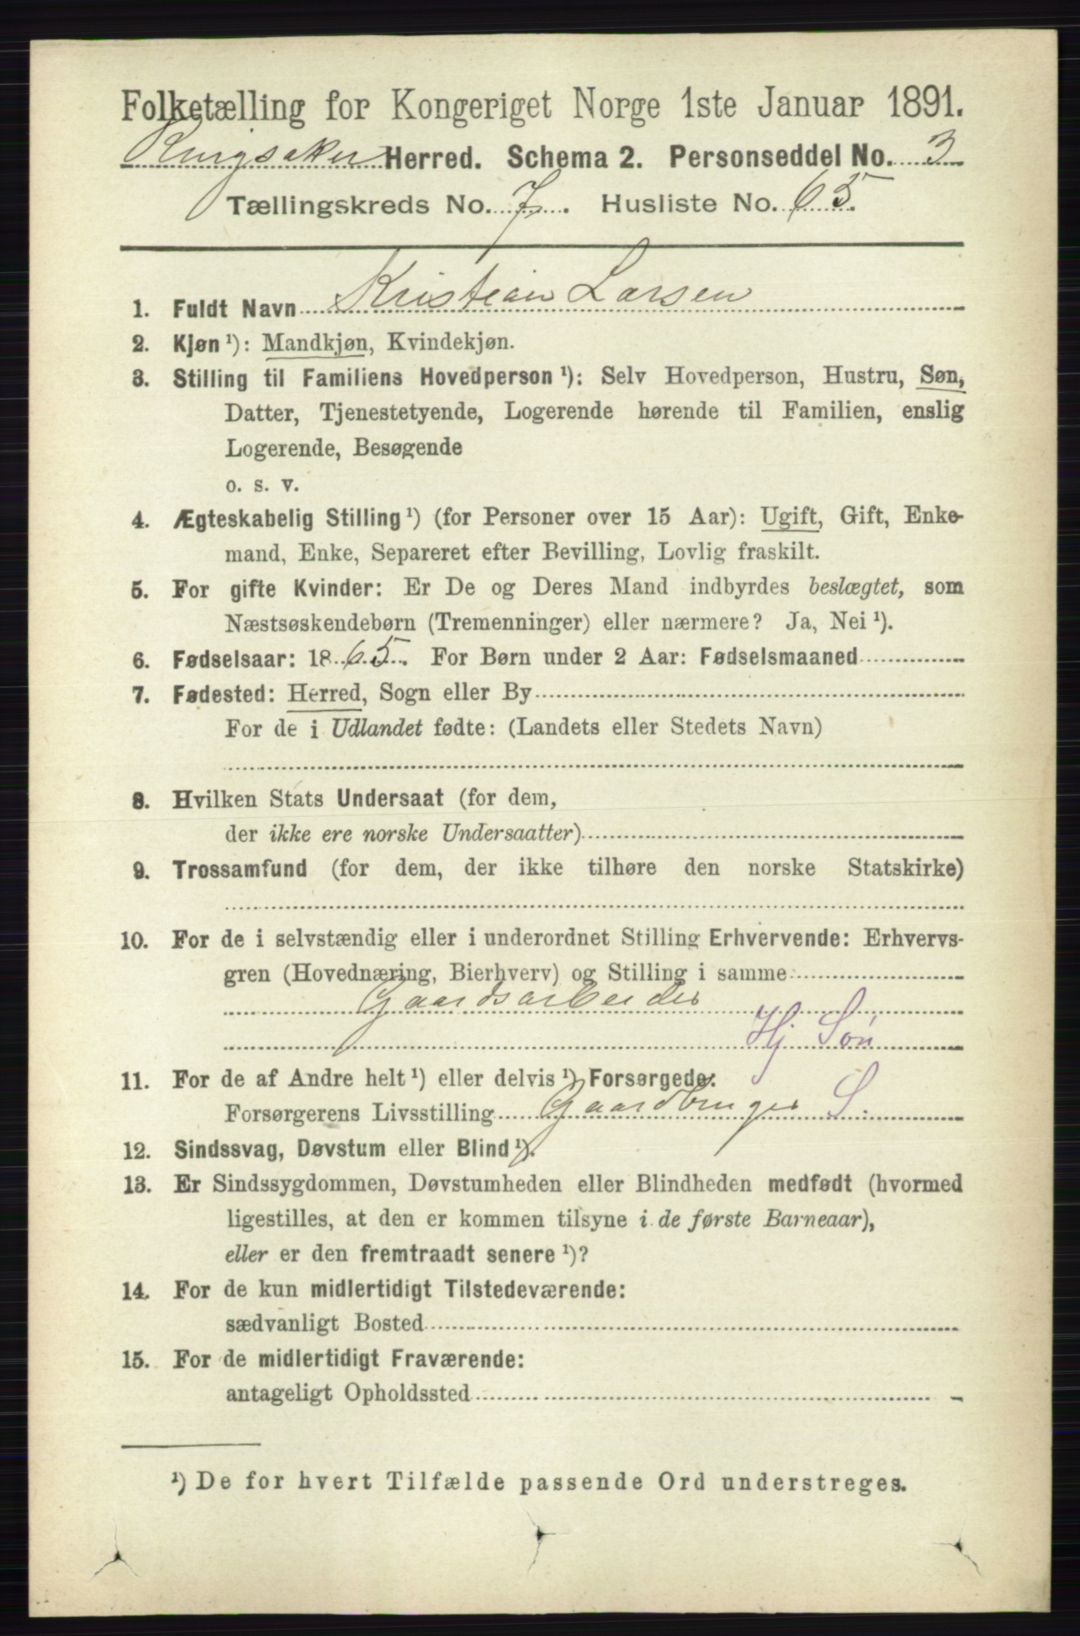 Folketælling for Kongeriget Norge 1ste Januar 1891.
Ringsaker Herred. Schema 2. Personseddel No. 3
Tællingskreds No. 7. Husliste No. 65.
1. Fuldt Navn Kristian Larsen
2. Kjøn ¹): Mandkjøn, Kvindekjøn.
3. Stilling til Familiens Hovedperson ¹): Selv Hovedperson, Hustru, Søn,
Datter, Tjenestetyende, Logerende hørende til Familien, enslig
Logerende, Besøgende
o. s. v.
4. Ægteskabelig Stilling ¹) (for Personer over 15 Aar): Ugift, Gift, Enke-
mand, Enke, Separeret efter Bevilling, Lovlig fraskilt.
5. For gifte Kvinder: Er De og Deres Mand indbyrdes beslægtet, som
Næstsøskendebørn (Tremenninger) eller nærmere? Ja, Nei ¹).
6. Fødselsaar: 1865. For Børn under 2 Aar: Fødselsmaaned
7. Fødested: Herred, Sogn eller By
For de i Udlandet fødte: (Landets eller Stedets Navn)
8. Hvilken Stats Undersaat (for dem,
der ikke ere norske Undersaatter)
9. Trossamfund (for dem, der ikke tilhøre den norske Statskirke)
10. For de i selvstændig eller i underordnet Stilling Erhvervende: Erhvervs-
gren (Hovednæring, Bierhverv) og Stilling i samme
Gaardsarbeider
Hj Søn
11. For de af Andre helt ¹) eller delvis ¹) Forsørgede:
Forsørgerens Livsstilling Gaardbruger S.
12. Sindssvag, Døvstum eller Blind ¹).
13. Er Sindssygdommen, Døvstumheden eller Blindheden medfødt (hvormed
ligestilles, at den er kommen tilsyne i de første Barneaar),
eller er den fremtraadt senere ¹)?
14. For de kun midlertidigt Tilstedeværende:
sædvanligt Bosted
15. For de midlertidigt Fraværende:
antageligt Opholdssted
¹) De for hvert Tilfælde passende Ord understreges.